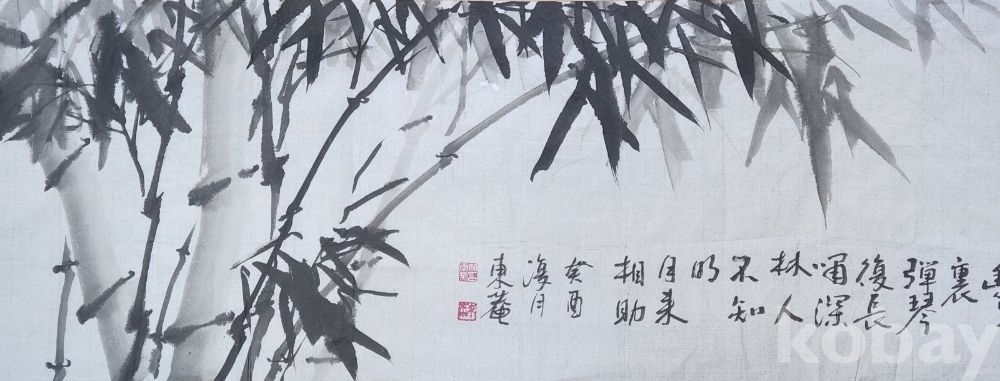 裏
弾琴
復長
嘯深
林人
不知
明
月来
相助
癸酉
復月
東菴
kobay